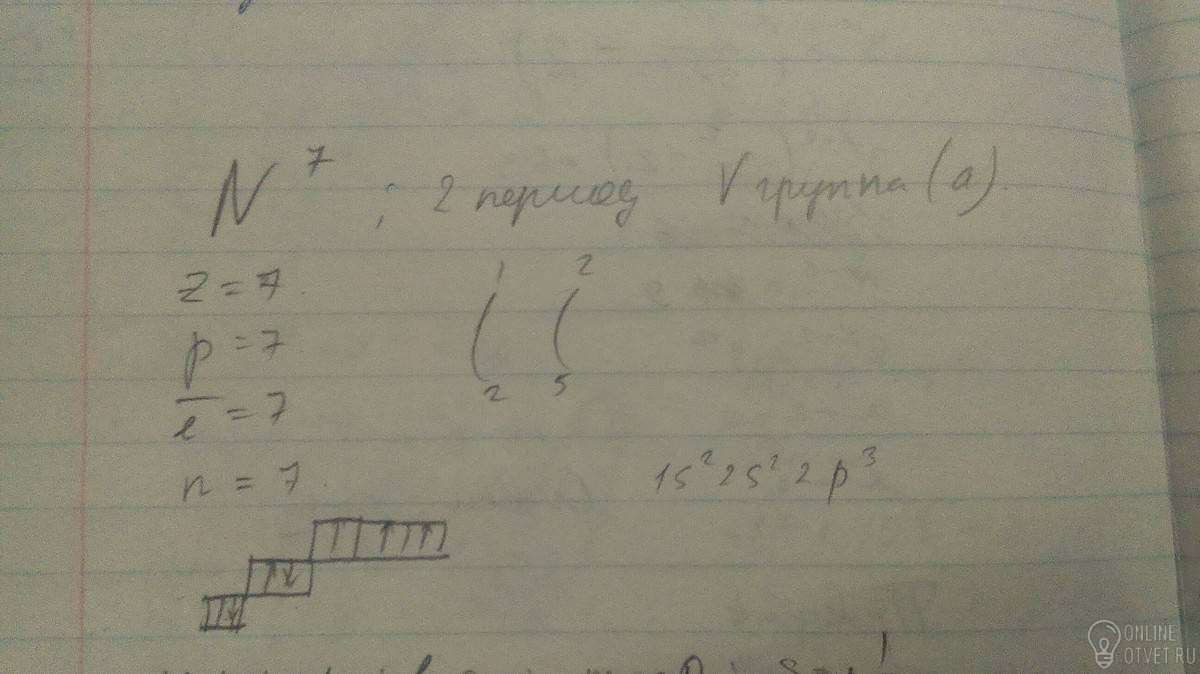 N⁷ ; 2 период V группа (а).
z = 7.
p = 7
e̅ = 7
n = 7.
1 2
( (
2 5
1s² 2s² 2p³
ONLINE
OTVET.RU